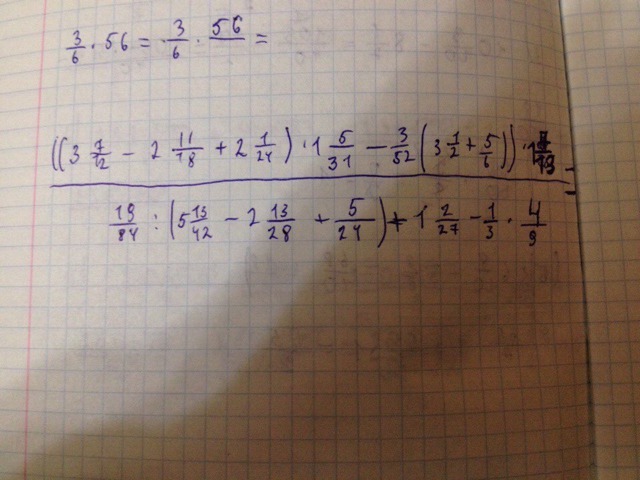 3/6 · 56 = 3/6 · 56 =
((3 7/12 − 2 11/18 + 2 1/24) · 1 5/31 − 3/52 (3 1/2 + 5/6)) ·
19/84 : (5 13/42 − 2 13/28 + 5/24) + 1 2/27 − 1/3 · 4/9